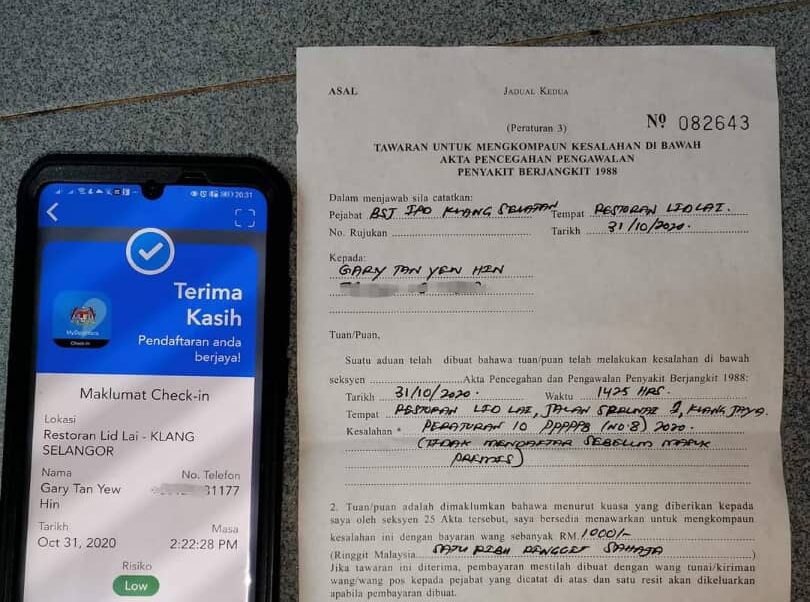 20:31
Terima
Kasih
Pendaftaran anda
berjaya!
MySejahtera
Check-in
Maklumat Check-in
Lokasi
Restoran Lid Lai - KLANG
SELANGOR
Nama
No. Telefon
Gary Tan Yew
Hin
31177
Tarikh
Masa
Oct 31, 2020
2:22:28 PM
Risiko
Low
ASAL
JADUAL KEDUA
(Peraturan 3)
Nº 082643
TAWARAN UNTUK MENGKOMPAUN KESALAHAN DI BAWAH
AKTA PENCEGAHAN PENGAWALAN
PENYAKIT BERJANGKIT 1988
Dalam menjawab sila catatkan:
Pejabat BSJ IPD KLANG SELATAN Tempat RESTORAN LID LAI.
No. Rujukan Tarikh 31/10/2020.
Kepada:
GARY TAN YEN HIN
Tuan/Puan,
Suatu aduan telah dibuat bahawa tuan/puan telah melakukan kesalahan di bawah
seksyen Akta Pencegahan dan Pengawalan Penyakit Berjangkit 1988:
Tarikh 31/10/2020. Waktu 1425 HRS.
Tempat RESTORAN LID LAI, JALAN KLANG JAYA.
Kesalahan * PERATURAN 10 PPPPPB (NO.8) 2020.
(TIDAK MENDAFTAR SEBELUM MASUK
PREMIS)
2. Tuan/puan adalah dimaklumkan bahawa menurut kuasa yang diberikan kepada
saya oleh seksyen 25 Akta tersebut, saya bersedia menawarkan untuk mengkompaun
kesalahan ini dengan bayaran wang sebanyak RM 1000/-
(Ringgit Malaysia SATU RIBU RINGGIT SAHAJA)
Jika tawaran ini diterima, pembayaran mestilah dibuat dengan wang tunai/kiriman
wang/wang pos kepada pejabat yang dicatat di atas dan satu resit akan dikeluarkan
apabila pembayaran dibuat.